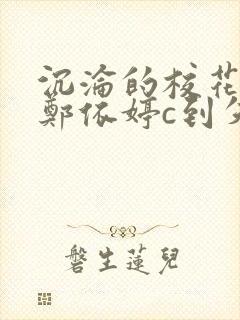 沉淪的校花
鄭依婷c到失
磐生蓮兒